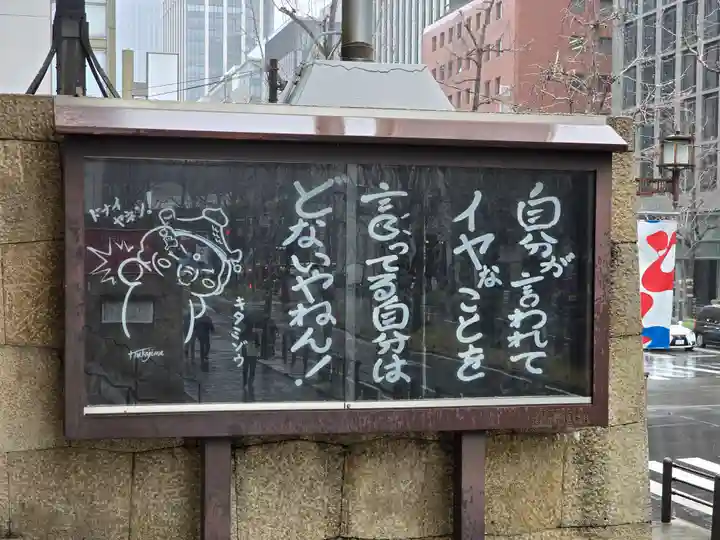 自分が言われて
イヤなことを
言ってる自分は
どないやねん!
ドナイ
ヤネン!
キタミゾウ